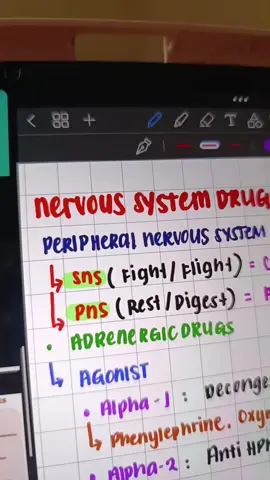 NERVOUS SYSTEM DRUG
PERIPHERAL NERVOUS SYSTEM
SNS (Fight/Flight) =
PNS (Rest/Digest) =
• ADRENERGIC DRUGS
AGONIST
• Alpha-1 :
Phenylephrine.
• Alpha-2 : Anti